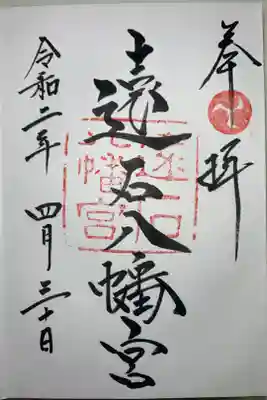 奉拝
遠石八幡宮
遠石
八幡宮
令和二年 四月三十日